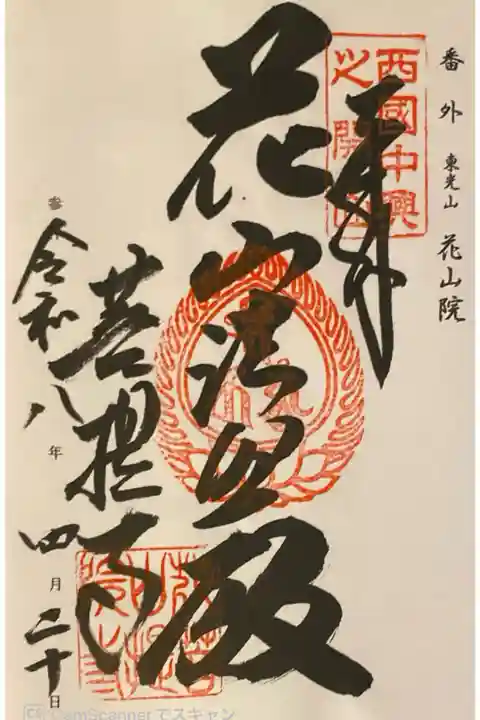 番外 東光山 花山院
西國中興
之開山
奉拝
花山法皇殿
菩提寺
参 令和八年四月二十日
CS CamScannerでスキャン